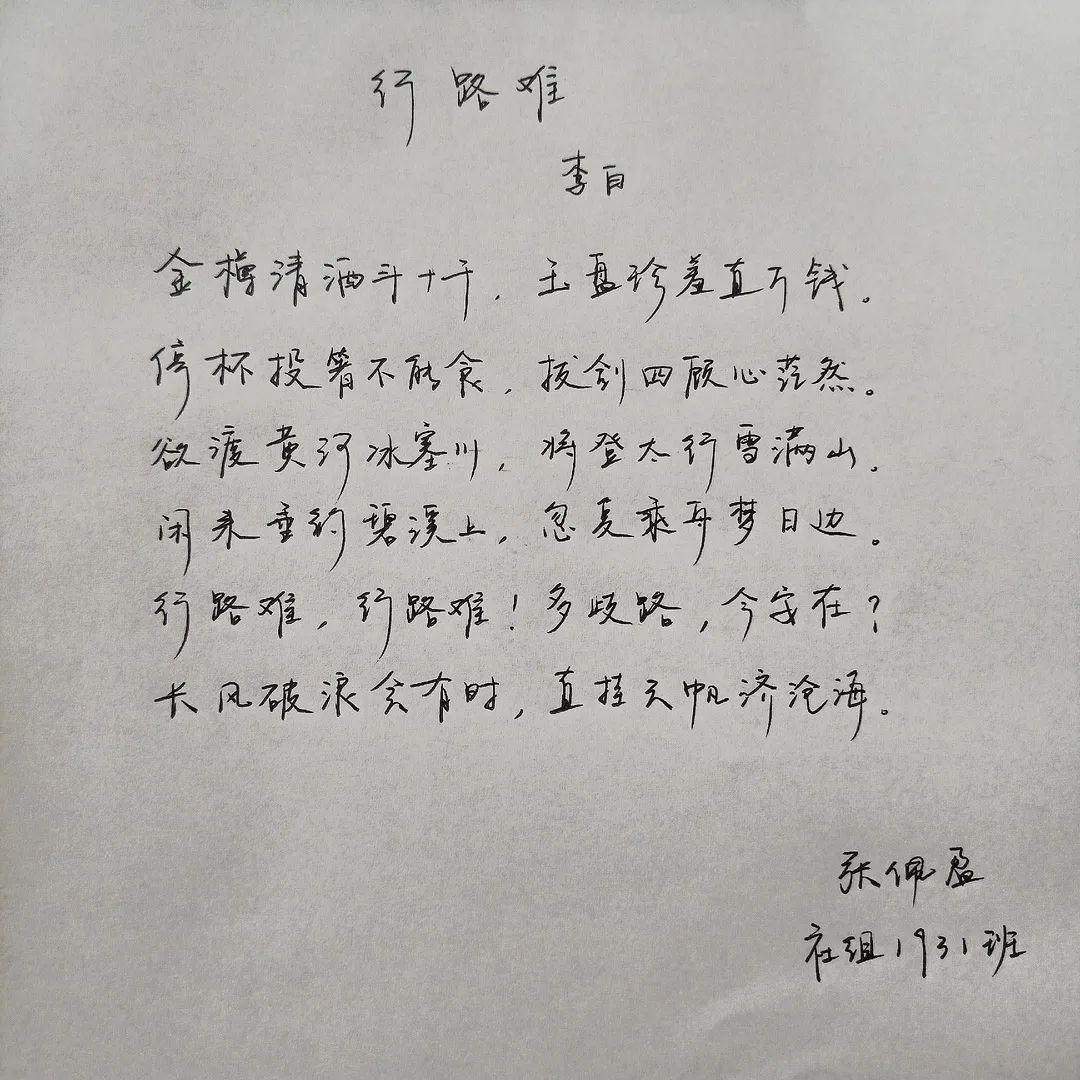 行路难
李白
金樽清酒斗十千，玉盘珍羞直万钱。
停杯投箸不能食，拔剑四顾心茫然。
欲渡黄河冰塞川，将登太行雪满山。
闲来垂钓碧溪上，忽复乘舟梦日边。
行路难，行路难！多歧路，今安在？
长风破浪会有时，直挂云帆济沧海。
张佩盈
社组1931班